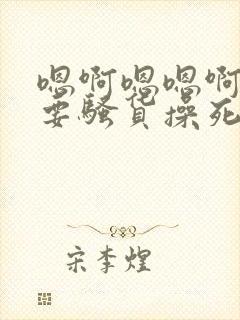 嗯啊嗯嗯啊
要骚货操死
宋李煌